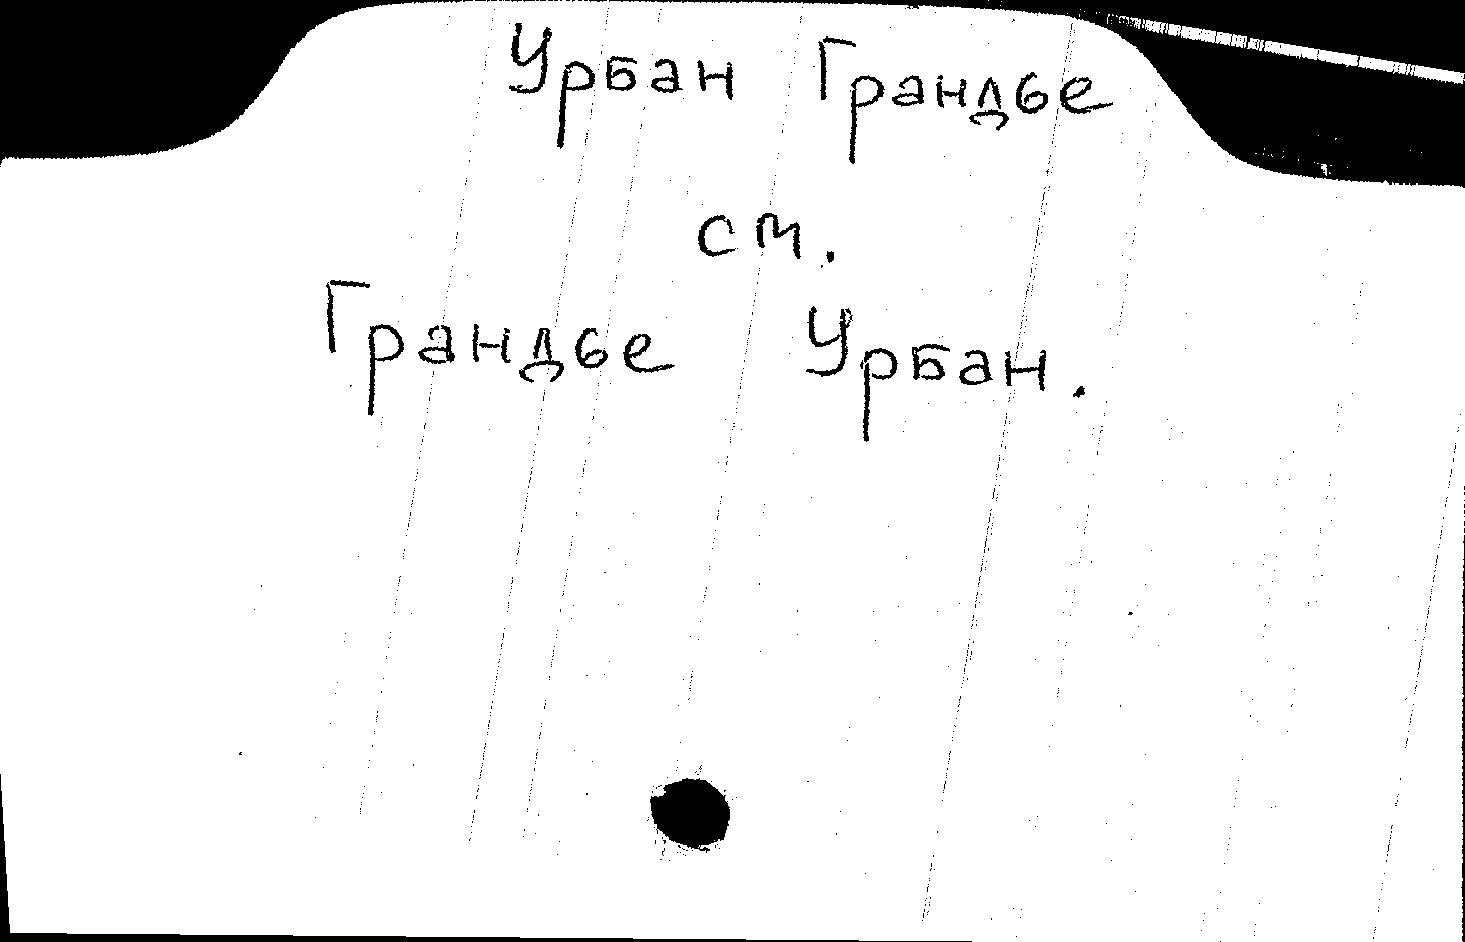 Урбан Грандье
см.
Грандье Урбан.